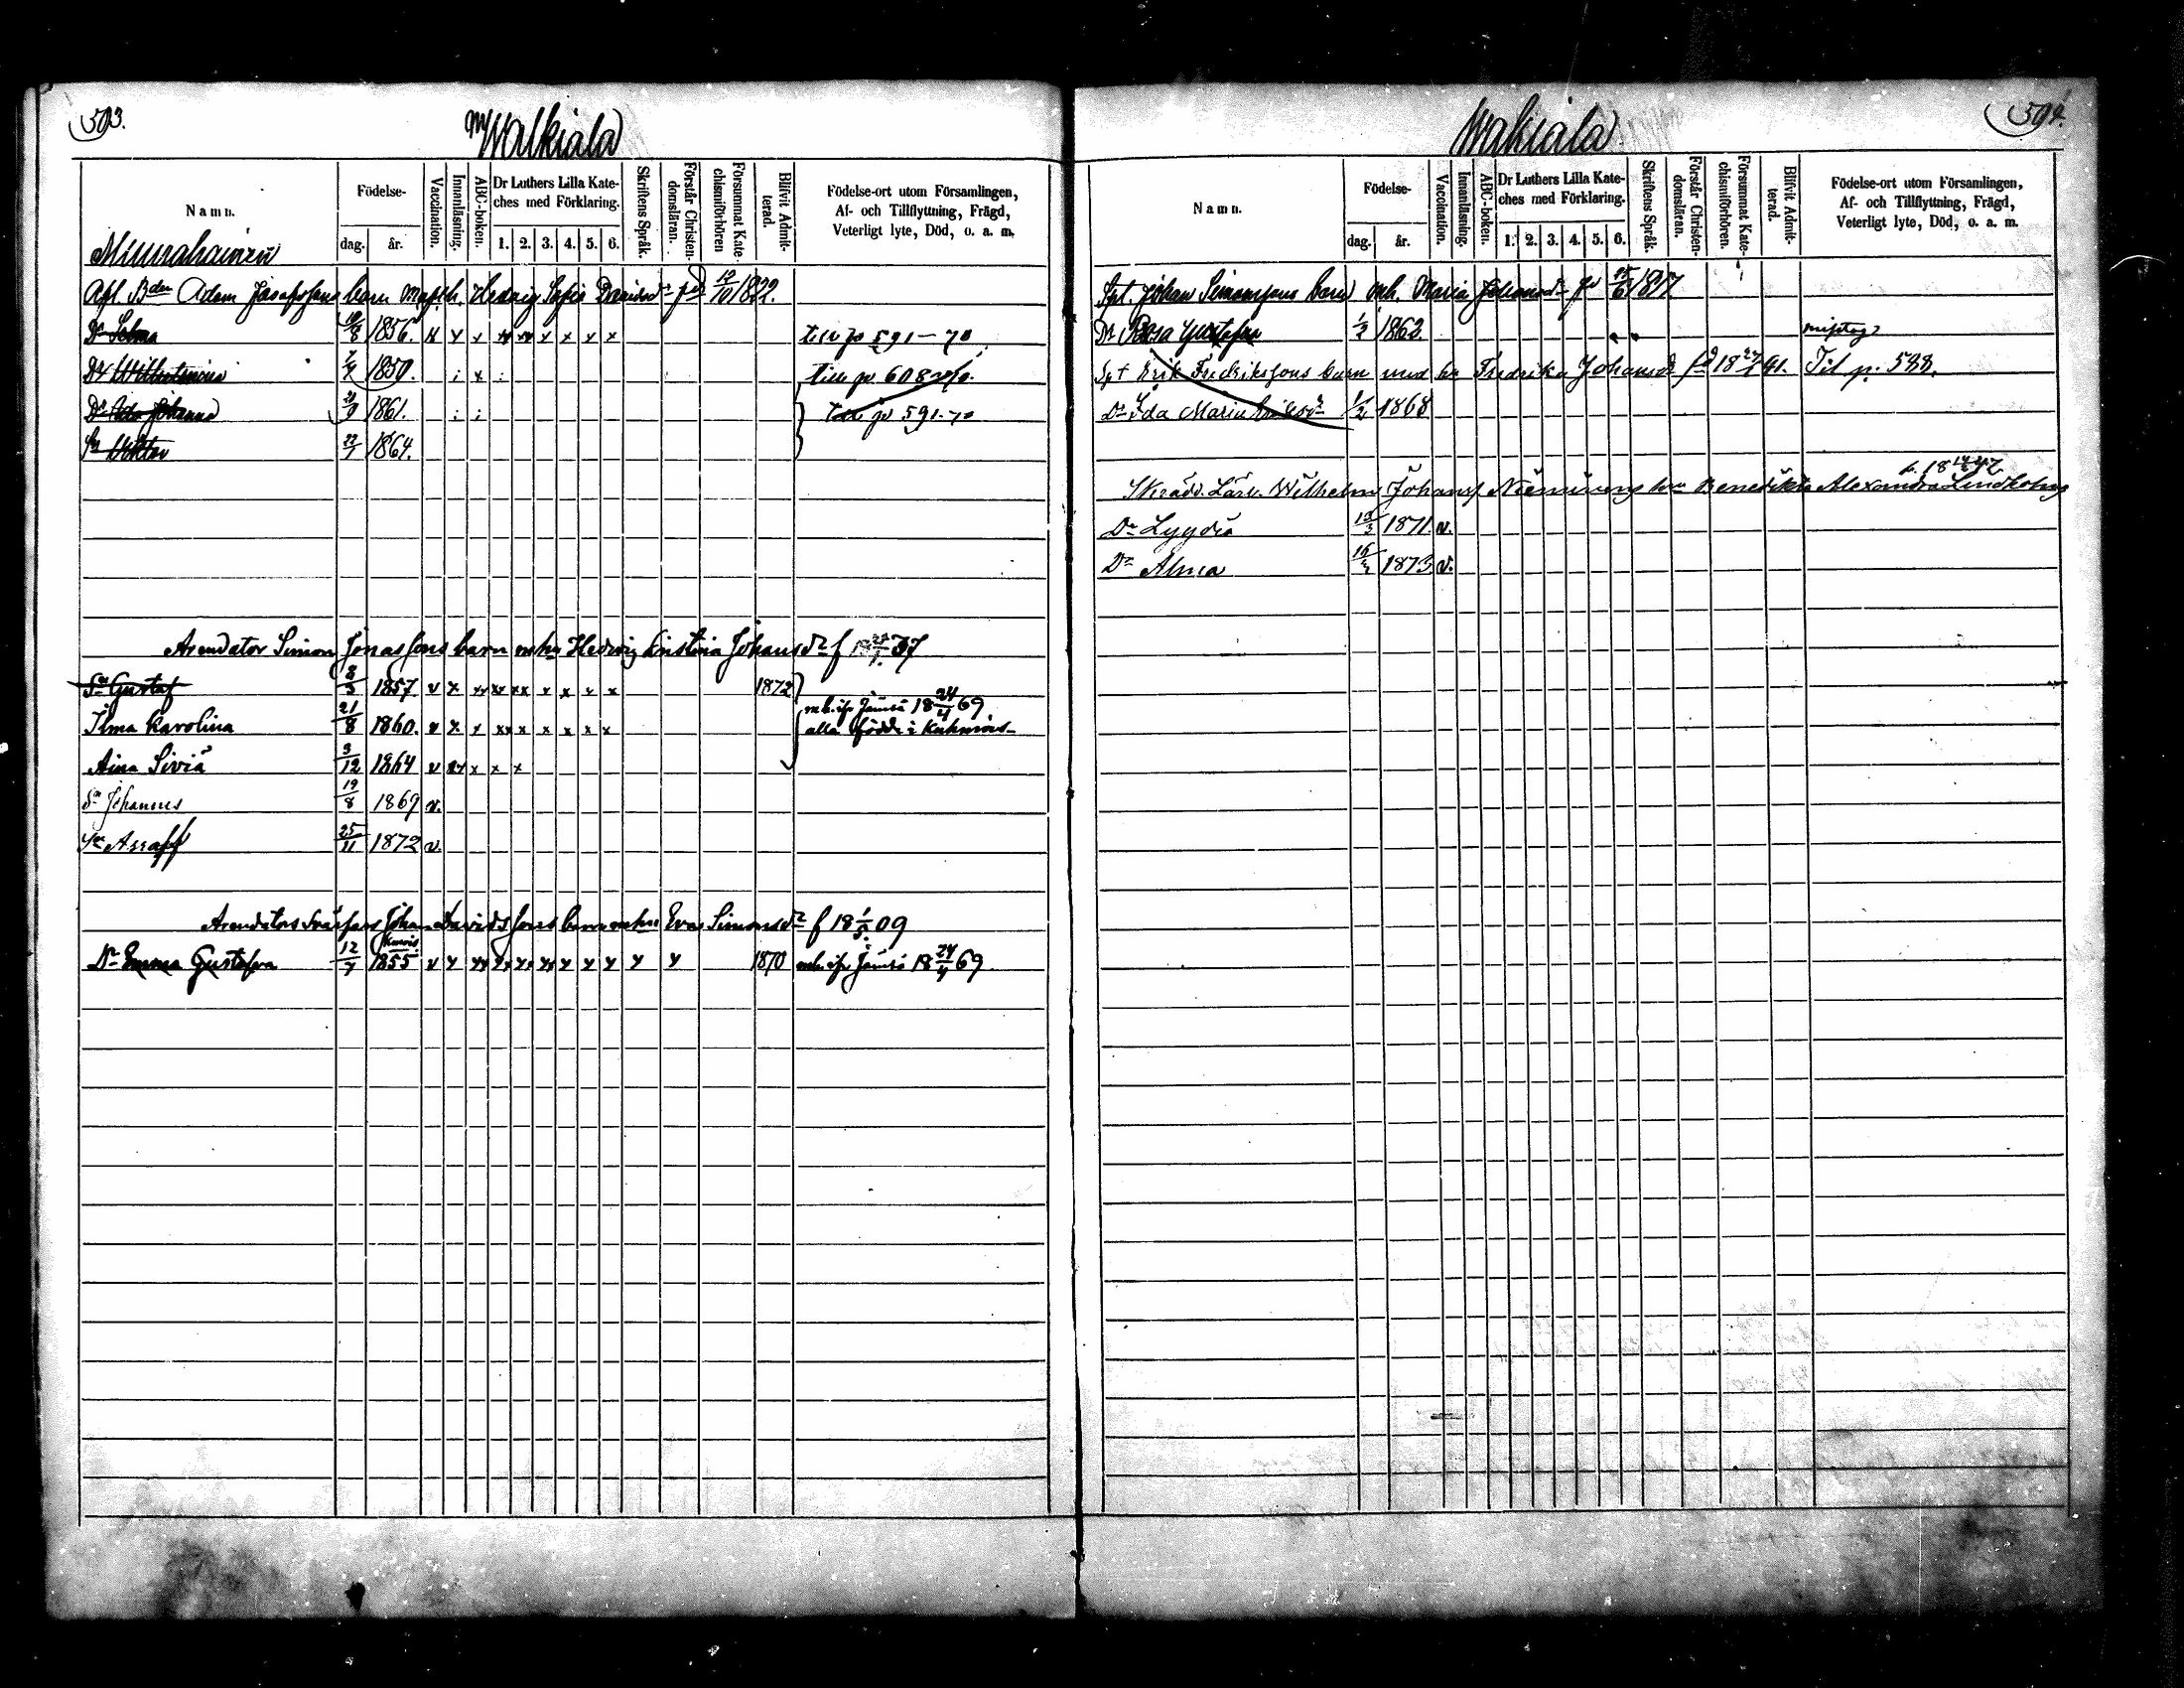 593.
Walkiala
Namn.
Födelse-
dag. år.
Vaccination.
Innanläsning.
ABC-boken.
Dr Luthers Lilla Kate-
ches med Förklaring.
1. 2. 3. 4. 5. 6.
Skriftens Språk.
Förstår Christen-
domsläran.
Försummat Kate-
chismiförhören
Blifvit Admit-
terad.
Födelse-ort utom Församlingen,
Af- och Tillflyttning, Frägd,
Veterligt lyte, Död, o. a. m.
Afl. Bden Adam Josafssons barn Hedvig Sofia Davidsdr 12/10 1822.
Dr Selma 19/8 1856. x x x xx xx x x x x till p 591-70
Dr Wilhelmina 1850. till p 608
Dr Ida Johanna 1861. till p 591-70
Sn Viktor 22/7 1864.
Arendator Simon Jonassons barn mhu Hedvig Kristina Johansdr f 37
Sn Gustaf 8/3 1857 v x xx xx xx x x x x 1872
Ilma Karolina 21/8 1860. v x x xx x x x x x Jämsä 18 24/4 69
alla födde i Kuhmois
Aina Siviä 3/12 1864 v xx x x x
Sn Johannes 19/8 1869 v.
Sn Assaff 25/11 1872 v.
Arendators Johan Davidssons barn mhu Eva Simonsdr f 18 09
Dr Emma Gustafva 12/7 1855 v x xx xx xx xx x x x x x 1870 Jämsä 18 24/4 69
594.
Walkiala
Namn.
Födelse-
dag. år.
Vaccination.
Innanläsning.
ABC-boken.
Dr Luthers Lilla Kate-
ches med Förklaring.
1. 2. 3. 4. 5. 6.
Skriftens Språk.
Förstår Christen-
domsläran.
Försummat Kate-
chismiförhören.
Blifvit Admit-
terad.
Födelse-ort utom Församlingen,
Af- och Tillflyttning, Frägd,
Veterligt lyte, Död, o. a. m.
Spt. Johan Simonssons barn mh. Maria Johansdr
Dr Rosa Gustafva 1862.
Spt Erik Fredrikssons barn med hu Fredrika Johansd 41. Til p. 588.
Dr Ida Maria Eriksdr 1/2 1868
Skrädd. Lärl. Wilhelm Johanss Nieminens hu Benedikta Alexandra Lindholm
Dr Lyydia 13/3 1871. v.
Dr Alma 1873 v.